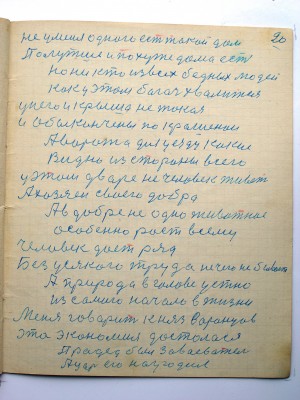 20
не у мия одного ест такой дом
Получши и похуже дома ест
Но ни кто из всех бедных людей
Как у этом багач хвалитжя
у него и крыша не такая
и обыкончены по крашеном
А ворота для уезду какие
Видно из стороны всего
у этом дваре не человек живят
А хозяен своего добра
А в добре не одно животнае
особенно рост всему
человек дает ряд
Без усякого труда ничего не бывает
А природа в голове устно
из самого начало в жизни
Меня говарит княз Варанцов
эта экономия досталася
Прадед был Завоеватель
А цар его наградил